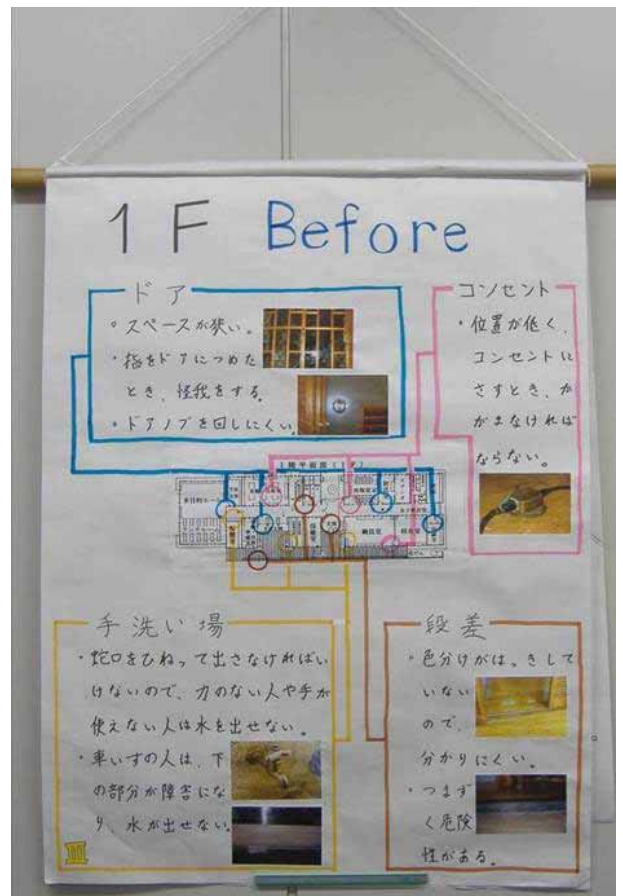 1F Before
ドア
・スペースが狭い。
・指をドアにつめた
とき、怪我をする。
・ドアノブを回しにくい。
コンセント
・位置が低く、
コンセントに
さすとき、か
がまなければ
ならない。
1階平面図(1F)
手洗い場
・蛇口をひねって出さなければい
けないので、力のない人や手が
使えない人は水を出せない。
・車いすの人は、下
の部分が障害にな
り、水が出せない。
段差
・色分けがはっきして
いない
ので、
分かりにくい。
・つまず
く危険
性がある。